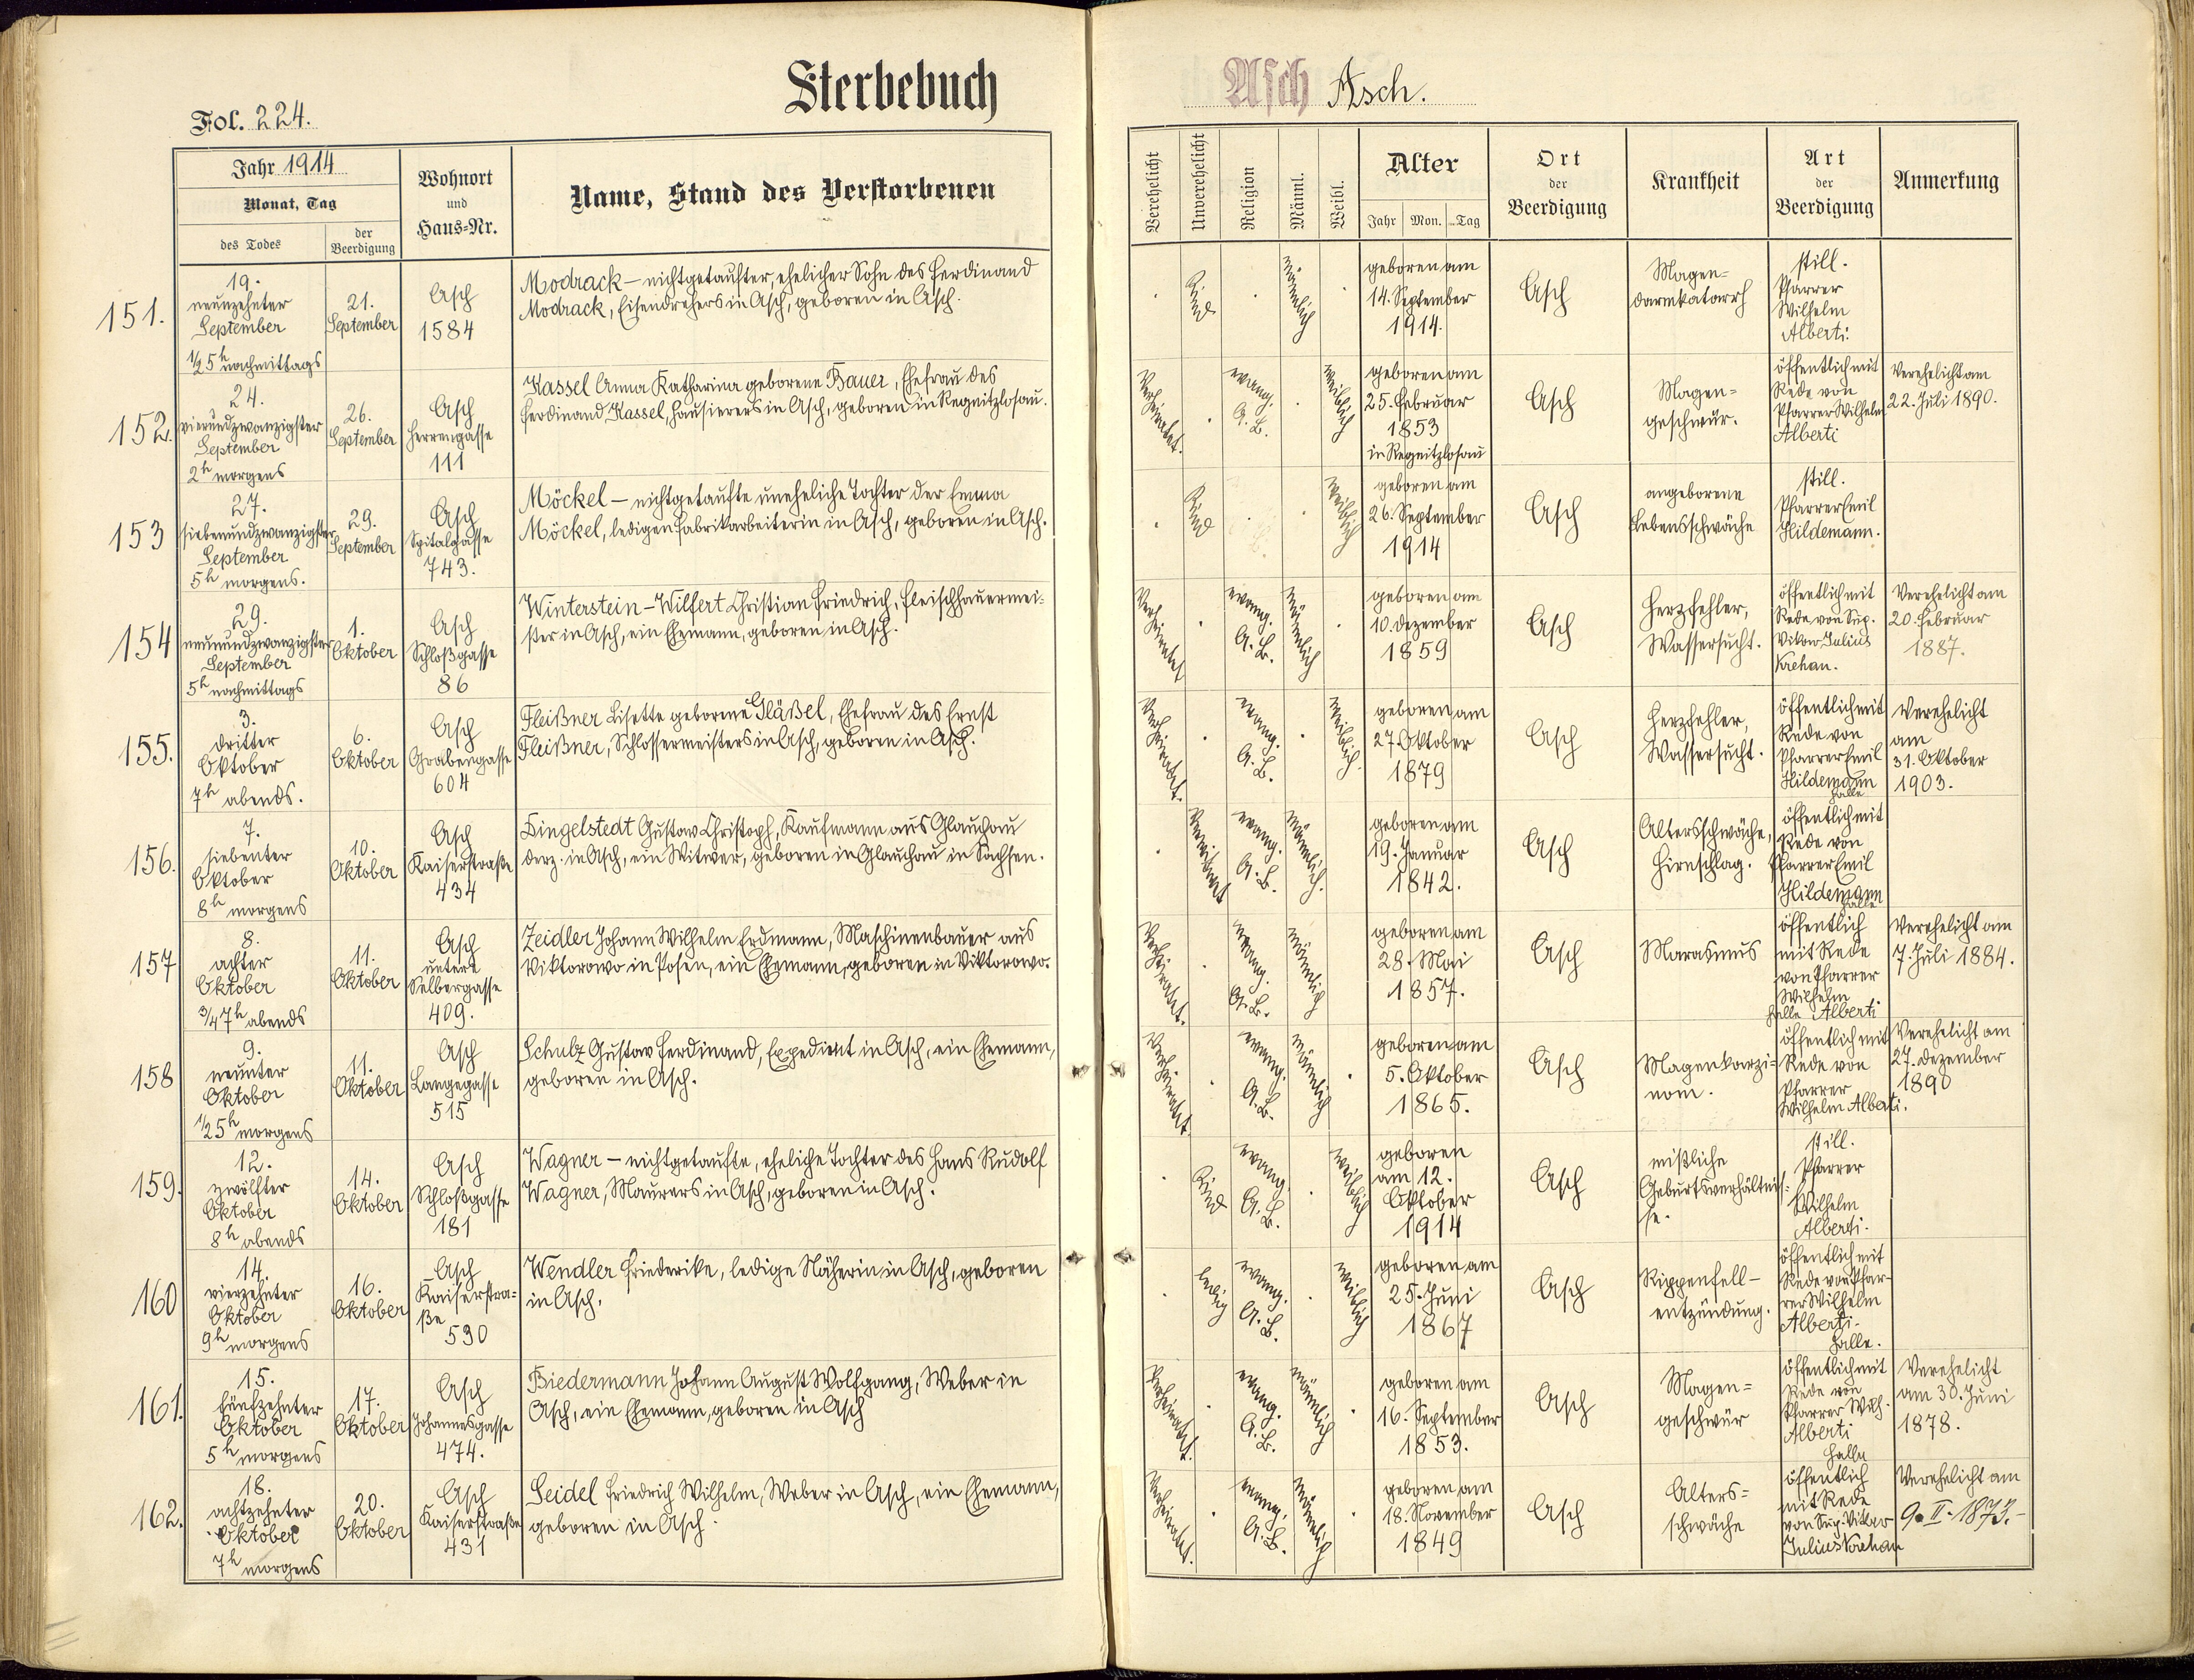 Sterbebuch
Asch Asch.
Fol. 224.
Jahr 1914
Monat, Tag
des Todes
der Beerdigung
Wohnort
und
Haus-Nr.
Name, Stand des Verstorbenen
Verehelicht
Unverehelicht
Religion
Männl.
Weibl.
Alter
Jahr Mon. Tag
Ort
der
Beerdigung
Krankheit
Art
der
Beerdigung
Anmerkung
151.
19.
neunzehnter
September
1/2 5h nachmittags
21.
September
Asch
1584
Modrack – nichtgetaufter, ehelicher Sohn des Ferdinand
Modrack, Eisendrehers in Asch, geboren in Asch.
Kind
männlich
geboren am
14. September
1914.
Asch
Magen-
darmkatarrh
still.
Pfarrer
Wilhelm
Alberti.
152.
24.
vierundzwanzigster
September
2h morgens
26.
September
Asch
Herrengasse
111
Kassel Anna Katharina geborene Bauer, Ehefrau des
Ferdinand Kassel, Hausierers in Asch, geboren in Regnitzlosau.
Verheiratet.
evang.
A. B.
weiblich
geboren am
25. Februar
1853
in Regnitzlosau
Asch
Magen-
geschwür.
öffentlich mit
Rede von
Pfarrer Wilhelm
Alberti
Verehelicht am
22. Juli 1890.
153
27.
siebenundzwanzigster
September
5h morgens.
29.
September
Asch
Spitalgasse
743.
Möckel – nichtgetaufte uneheliche Tochter der Emma
Möckel, ledigen Fabrikarbeiterin in Asch, geboren in Asch.
Kind
weiblich
geboren am
26. September
1914
Asch
angeborene
Lebensschwäche
still.
Pfarrer Emil
Hildemann.
154
29.
neunundzwanzigster
September
5h nachmittags
1.
Oktober
Asch
Schloßgasse
86
Winterstein-Wilfert Christian Friedrich, Fleischhauermei-
ster in Asch, ein Ehemann, geboren in Asch.
Verheiratet
evang.
A. B.
männlich
geboren am
10. Dezember
1859
Asch
Herzfehler,
Wassersucht.
öffentlich mit
Rede von Sup.
Vikar Julius
Krehan.
Verehelicht am
20. Februar
1887.
155.
3.
dritter
Oktober
7h abends.
6.
Oktober
Asch
Grabengasse
604
Fleißner Lisette geborene Gläßel, Ehefrau des Ernst
Fleißner, Schlossermeisters in Asch, geboren in Asch.
Verheiratet.
evang.
A. B.
weiblich.
geboren am
27. Oktober
1879
Asch
Herzfehler,
Wassersucht.
öffentlich mit
Rede von
Pfarrer Emil
Hildemann
Halle
Verehelicht
am
31. Oktober
1903.
156.
7.
siebenter
Oktober
8h morgens
10.
Oktober
Asch
Kaiserstraße
434
Dingelstedt Gustav Christoph, Kaufmann aus Glauchau
derz. in Asch, ein Witwer, geboren in Glauchau in Sachsen.
Verwitwet
evang.
A. B.
männlich.
geboren am
19. Januar
1842.
Asch
Altersschwäche,
Hirnschlag.
öffentlich mit
Rede von
Pfarrer Emil
Hildemann
Halle
157
8.
achter
Oktober
3/4 7h abends
11.
Oktober
Asch
untere
Selbergasse
409.
Zeidler Johann Wilhelm Erdmann, Maschinenbauer aus
Viktorowo in Posen, ein Ehemann, geboren in Viktorowo.
Verheiratet.
evang.
A. B.
männlich
geboren am
28. Mai
1857.
Asch
Marasmus
öffentlich
mit Rede
von Pfarrer
Wilhelm
Halle Alberti
Verehelicht am
7. Juli 1884.
158
9.
neunter
Oktober
1/2 5h morgens
11.
Oktober
Asch
Langegasse
515
Schulz Gustav Ferdinand, Expedient in Asch, ein Ehemann,
geboren in Asch.
Verheiratet.
evang.
A. B.
männlich
geboren am
5. Oktober
1865.
Asch
Magenkarzi-
nom.
öffentlich mit
Rede von
Pfarrer
Wilhelm Alberti.
Verehelicht am
27. Dezember
1890
159.
12.
zwölfter
Oktober
8h abends
14.
Oktober
Asch
Schloßgasse
181
Wagner – nichtgetaufte, eheliche Tochter des Hans Rudolf
Wagner, Maurers in Asch, geboren in Asch.
Kind
evang.
A. B.
weiblich
geboren
am 12.
Oktober
1914
Asch
mißliche
Geburtsverhältnis-
se.
still.
Pfarrer
Wilhelm
Alberti.
160
14.
vierzehnter
Oktober
9h morgens
16.
Oktober
Asch
Kaiserstra-
ße
590
Wendler Friederike, ledige Näherin in Asch, geboren
in Asch.
ledig
evang.
A. B.
weiblich
geboren am
25. Juni
1867
Asch
Rippenfell-
entzündung.
öffentlich mit
Rede von Pfar-
rer Wilhelm
Alberti.
Halle.
161.
15.
fünfzehnter
Oktober
5h morgens
17.
Oktober
Asch
Johannesgasse
474.
Biedermann Johann August Wolfgang, Weber in
Asch, ein Ehemann, geboren in Asch
Verheiratet.
evang.
A. B.
männlich
geboren am
16. September
1853.
Asch
Magen-
geschwür
öffentlich mit
Rede von
Pfarrer Wilh.
Alberti
Halle
Verehelicht
am 30. Juni
1878.
162.
18.
achtzehnter
Oktober
7h morgens
20.
Oktober
Asch
Kaiserstraße
431
Seidel Friedrich Wilhelm, Weber in Asch, ein Ehemann,
geboren in Asch.
Verheiratet.
evang.
A. B.
männlich
geboren am
18. November
1849
Asch
Alters-
schwäche
öffentlich
mit Rede
von Sup. Vikar
Julius Krehan
Verehelicht am
9. II. 1873.-